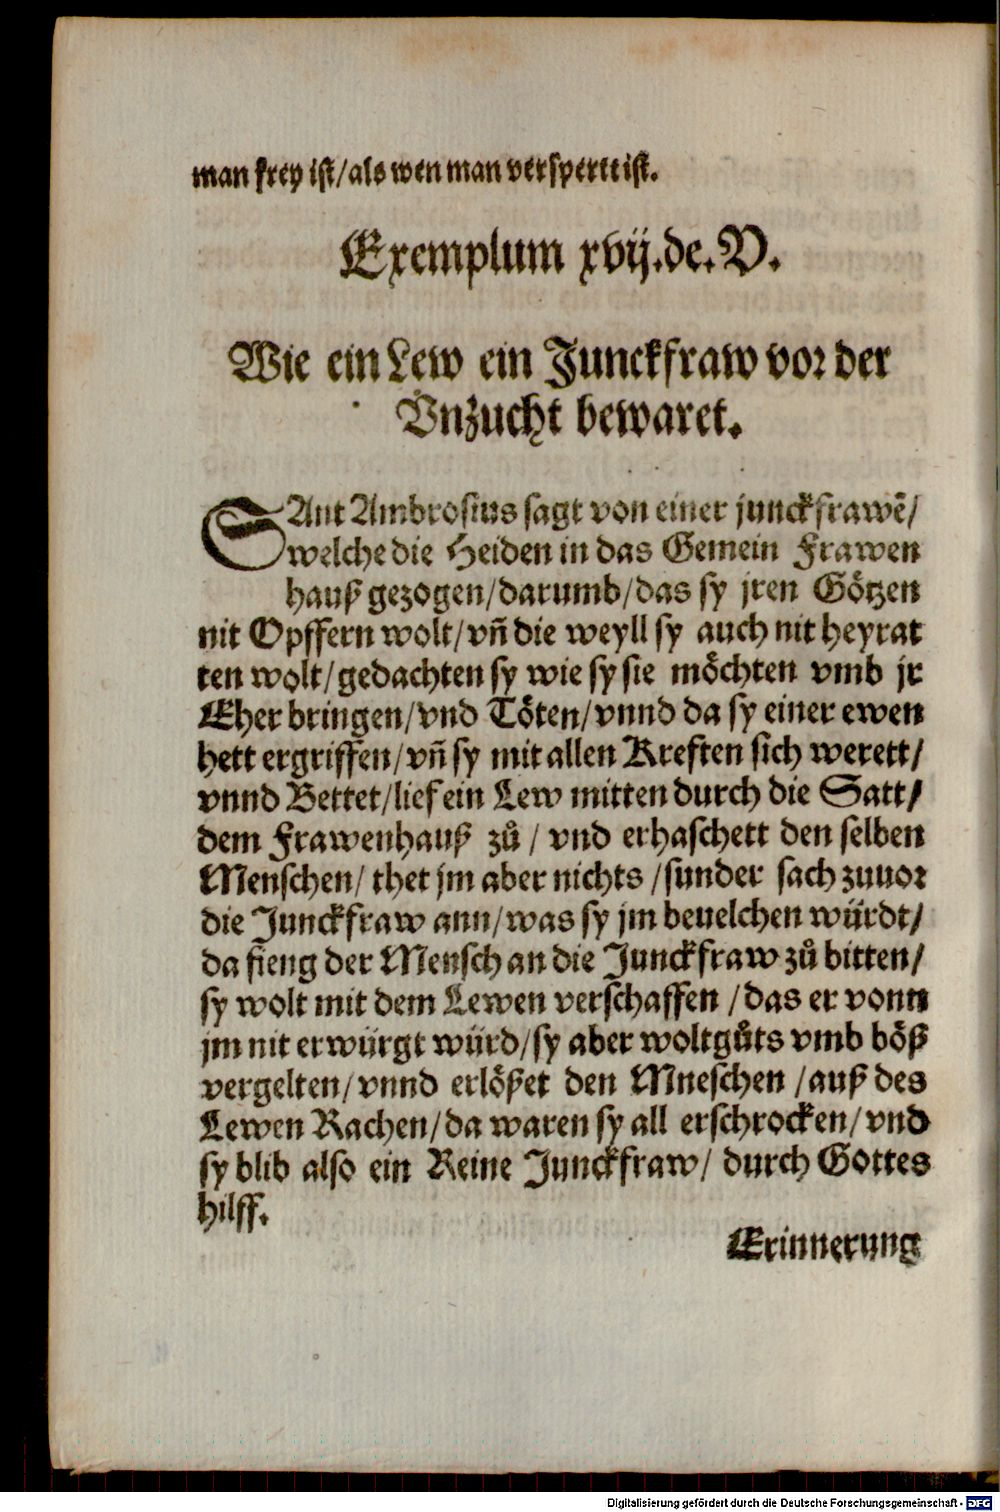 man frey ist/als wen man versperrt ist.
Exemplum xvij.de.V.
Wie ein Lew ein Junckfraw vor der
Vnzucht bewaret.
SAnt Ambrosius sagt von einer junckfrawẽ/
welche die Heiden in das Gemein Frawen
hauß gezogen/darumb/das sy jren Götzen
nit Opffern wolt/vñ die weyll sy auch nit heyrat
ten wolt/gedachten sy wie sy sie möchten vmb jr
Eher bringen/vnd Töten/vnnd da sy einer ewen
hett ergriffen/vñ sy mit allen Kreften sich werett/
vnnd Bettet/lief ein Lew mitten durch die Satt/
dem Frawenhauß zů / vnd erhaschett den selben
Menschen/ thet jm aber nichts /sunder sach zuuor
die Junckfraw ann/was sy jm beuelchen würdt/
da fieng der Mensch an die Junckfraw zů bitten/
sy wolt mit dem Lewen verschaffen /das er vonn
jm nit erwürgt würd/sy aber wolt gůts vmb böß
vergelten/vnnd erlößet den Mneschen /auß des
Lewen Rachen/da waren sy all erschrocken/vnd
sy blib also ein Reine Junckfraw/ durch Gottes
hilff.
Erinnerung
Digitalisierung gefördert durch die Deutsche Forschungsgemeinschaft - DFG